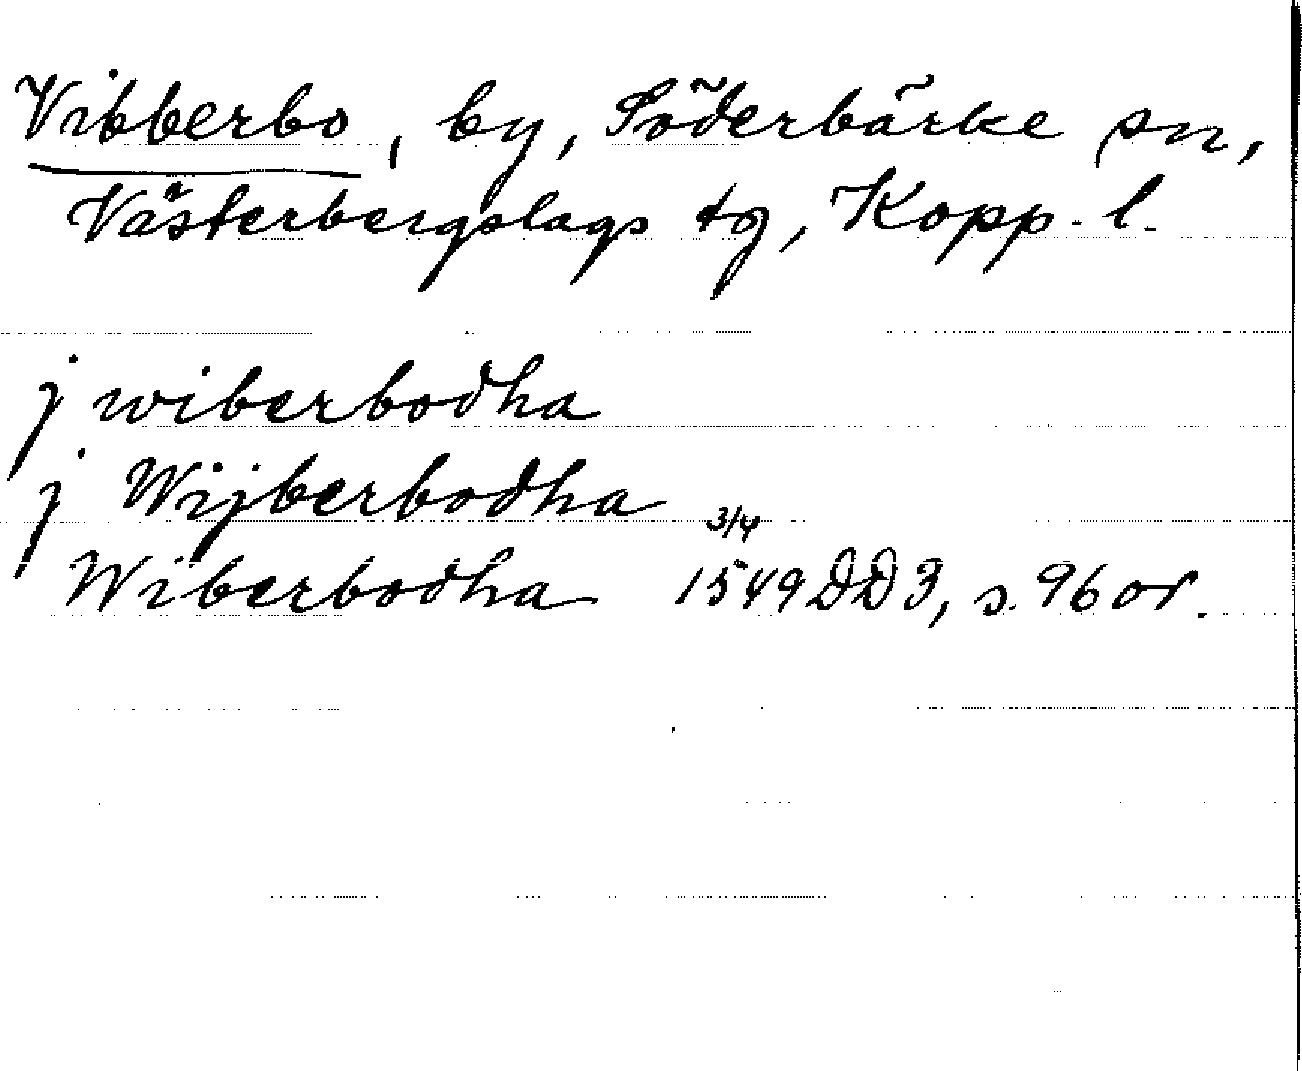 Vibberbo, by, Söderbärke sn,
Västerbergslags tg, Kopp. l.
j wiberbodha
j Wijberbodha
Wiberbodha 3/4 1549 DD 3, s. 96 or.